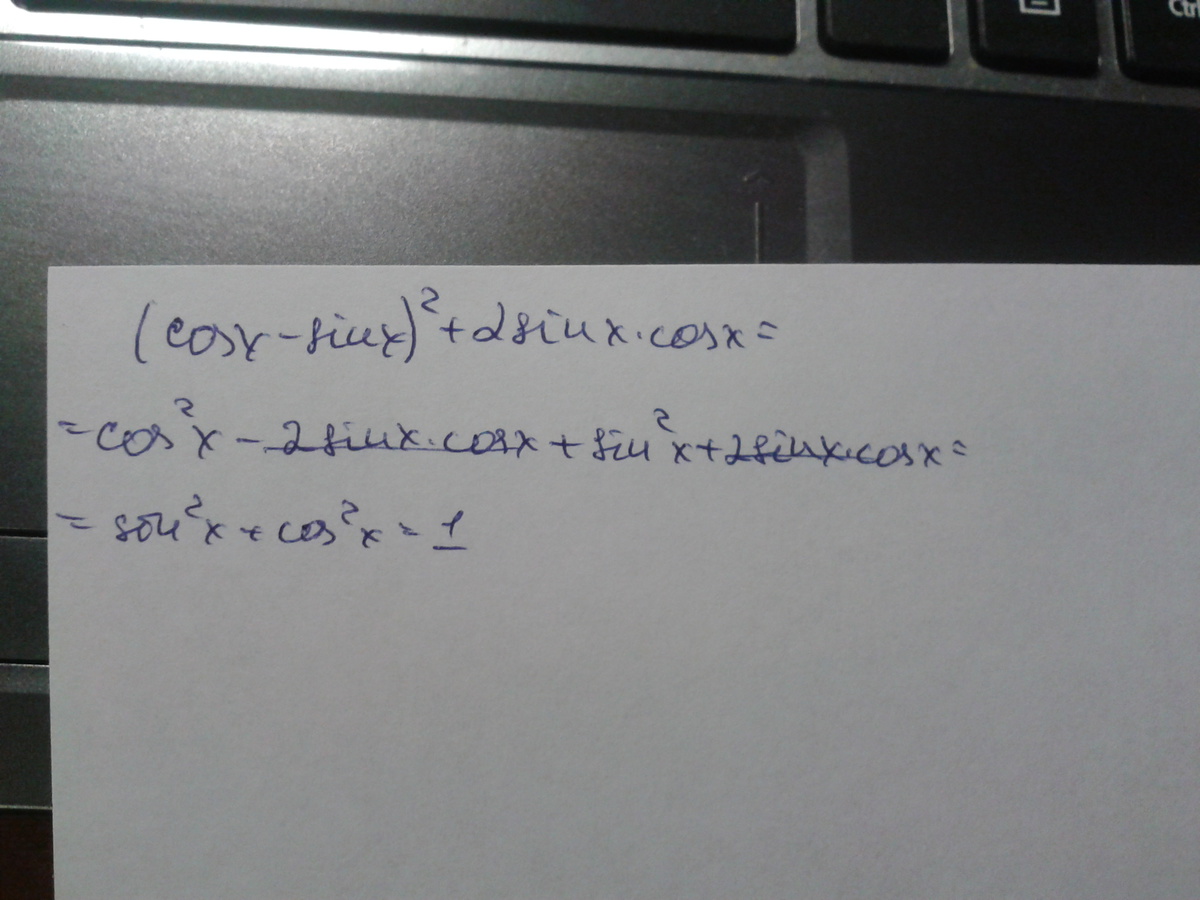 Ctrl
(cosx-sinx)²+2sinx·cosx=
=cos²x-2sinx·cosx+sin²x+2sinx·cosx=
=sin²x+cos²x=1